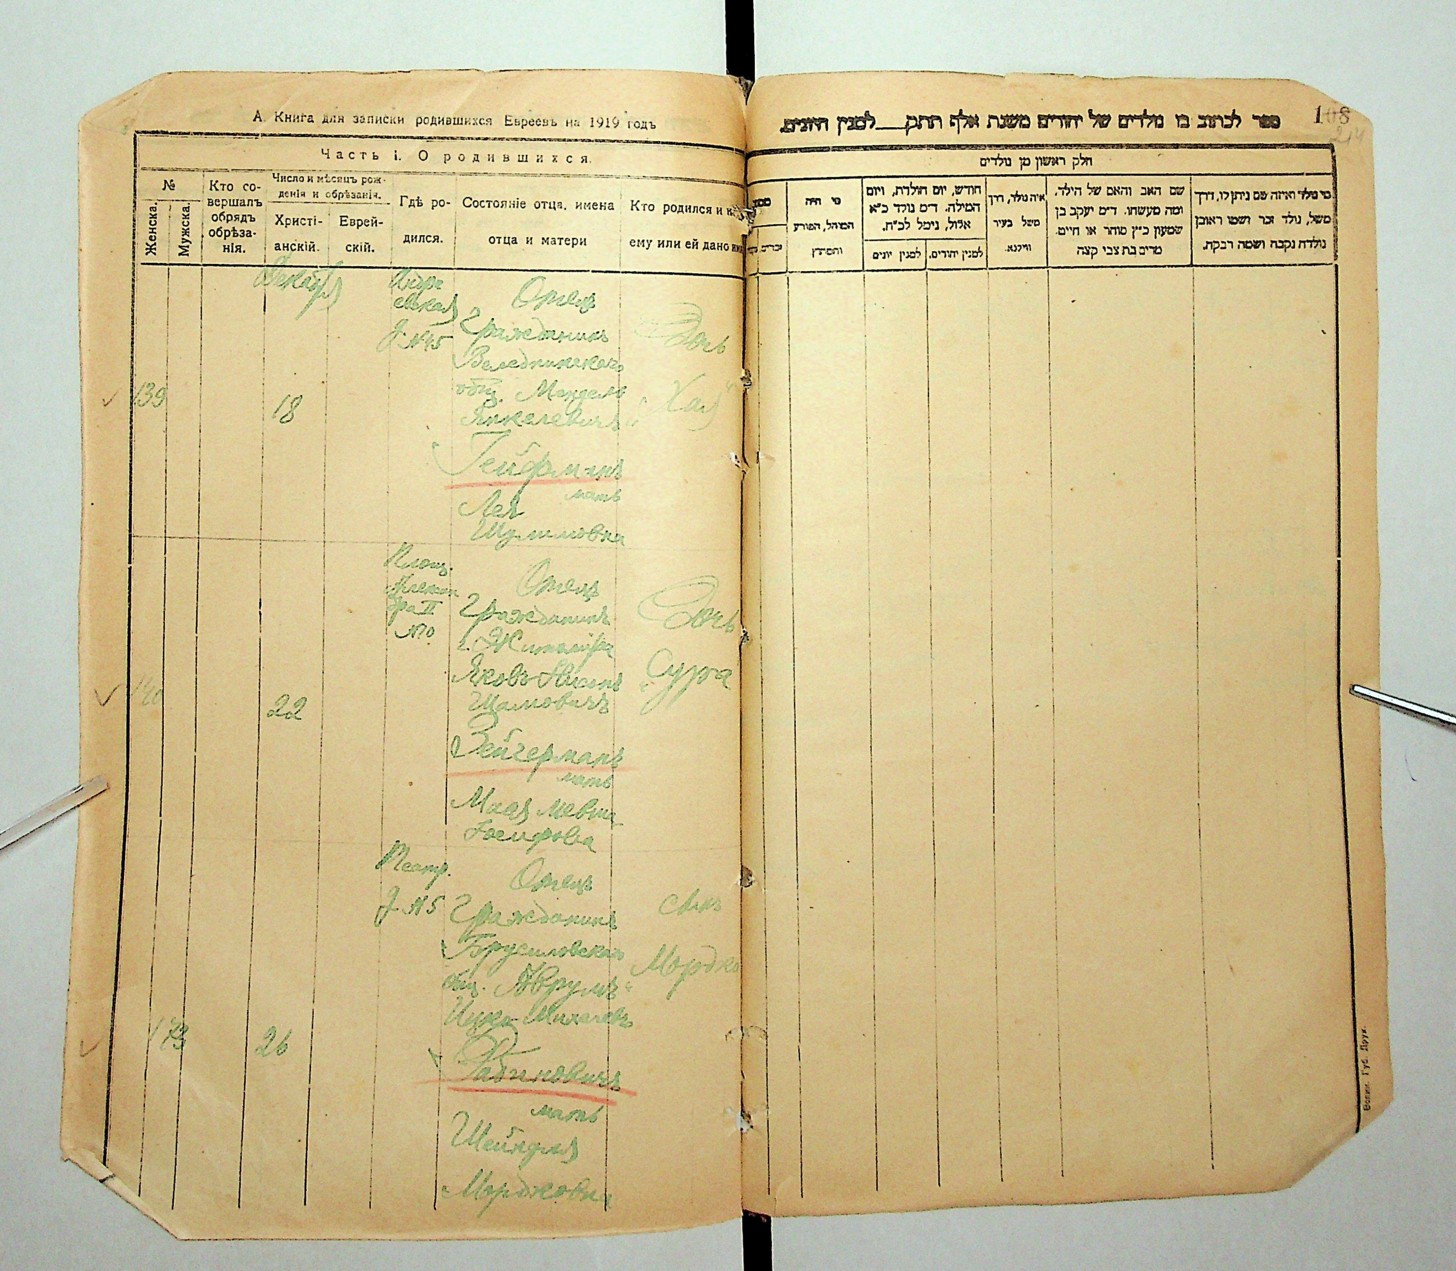 А. Книга для записки родившихся Евреевъ на 1919 годъ
Часть I. О родившихся.
№
Женска.
Мужска.
Кто со-
вершалъ
обрядъ
обрѣза-
нія.
Число и мѣсяцъ рож-
денія и обрѣзанія.
Христі-
анскій.
Еврей-
скій.
Гдѣ ро-
дился.
Состояніе отца, имена
отца и матери
Кто родился и
ему или ей дано
139
Декабря
18
Андре
евская
У. №45
Отецъ
Гражданинъ
общ. Мандель
Янкелевичъ
Гейфманъ
мать
Лея
Шулимовна
Дочь
"Хая"
140
22
Площ.
Отецъ
Гражданинъ
г. Житоміра
Шамовичъ
Зейгерманъ
мать
Дочь
Сура
173
26
Театр.
У. №5
Отецъ
Гражданинъ
Брусиловскаго
общ. Аврумъ
Рабиновичъ
мать
Шейндля
Мордковна
сынъ
Мордко
ספר לכתוב בו נולדים של יהודים משנת אלף תתק___ למנין היונים.
108
חלק ראשון מן נולדים
מי היה
המוהל, הפורע
והמוצץ
חודש, יום הולדת, ויום
המילה. ד״מ נולד כ״א
אלול, נימל לכ״ח.
למנין יונים
למנין יהודים.
איה נולד, דרך
משל בעיר
ווילנא.
שם האב והאם של הילד.
ומה מעשהו. ד״מ יעקב בן
שמעון כ״ץ סוחר או חיים.
מרים בת צבי קצה
מי נולד ואיזה שם ניתן לו, דרך
משל, נולד זכר ושמו ראובן
נולדה נקבה ושמה רבקה.
Волын. Губ. Друк.